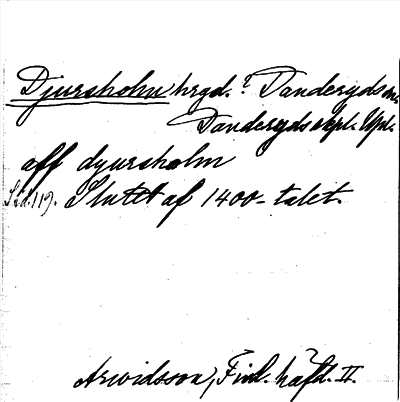 Djursholm hrgd.? Danderyds sn.
Danderyds skpl. Upl.
aff dyursholm
Sid. 119). Slutet af 1400-talet.
Arwidsson, Finl. häfd. II.